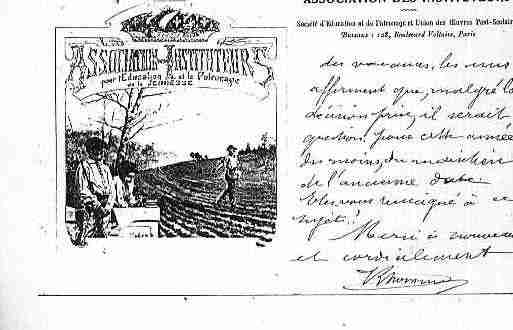 ASSOCIATION DES INSTITUTEURS
pour l'Education et le Patronage
de la JEUNESSE
ASSOCIATION DES INSTITUTEUR
Société d'Education et de Patronage et Union des Œuvres Post-Scolair
BUREAUX : 128, Boulevard Voltaire, Paris
des vacances, les uns
affirment que, malgré la
décision prise, il serait
question, pour cette année
du moins, du maintien
de l'ancienne date.
Etes-vous renseigné à ce
sujet ?
Merci à nouveau
et cordialement